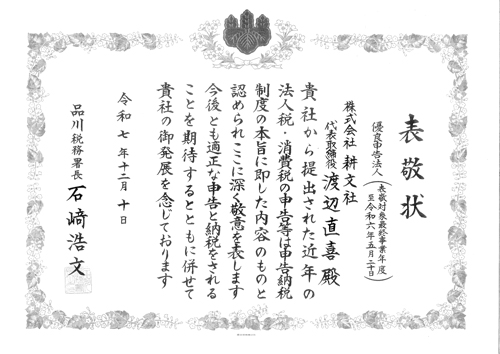 表敬状
優良申告法人
(表敬対象最終事業年度
至令和六年五月二十日)
株式会社 耕文社
代表取締役 渡辺直喜 殿
貴社から提出された近年の
法人税・消費税の申告等は申告納税
制度の本旨に即した内容のものと
認められここに深く敬意を表します
今後とも適正な申告と納税をされる
ことを期待するとともに併せて
貴社の御発展を念じております
令和七年十二月十日
品川税務署長 石﨑浩文